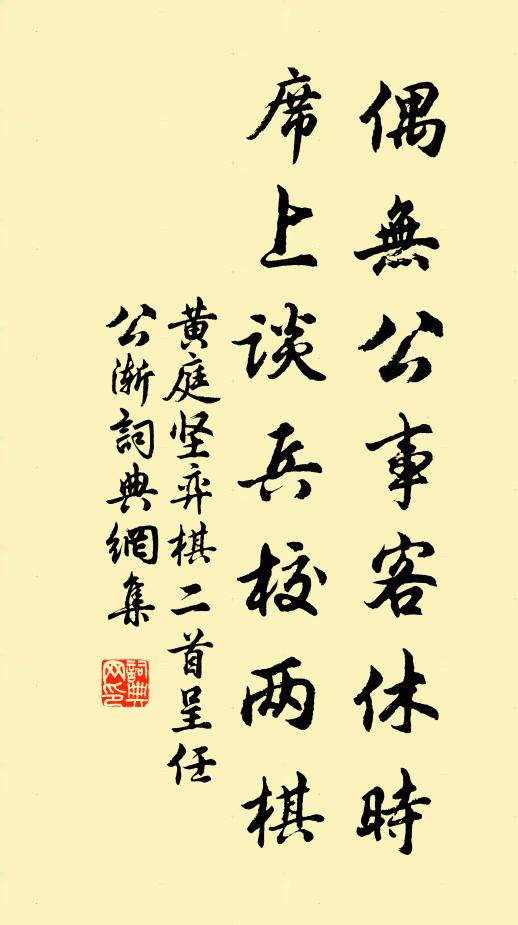 偶無公事客休時
席上談兵校两棋
黄庭坚弈棋二首呈任
公渐詞典網集
詞典
网印